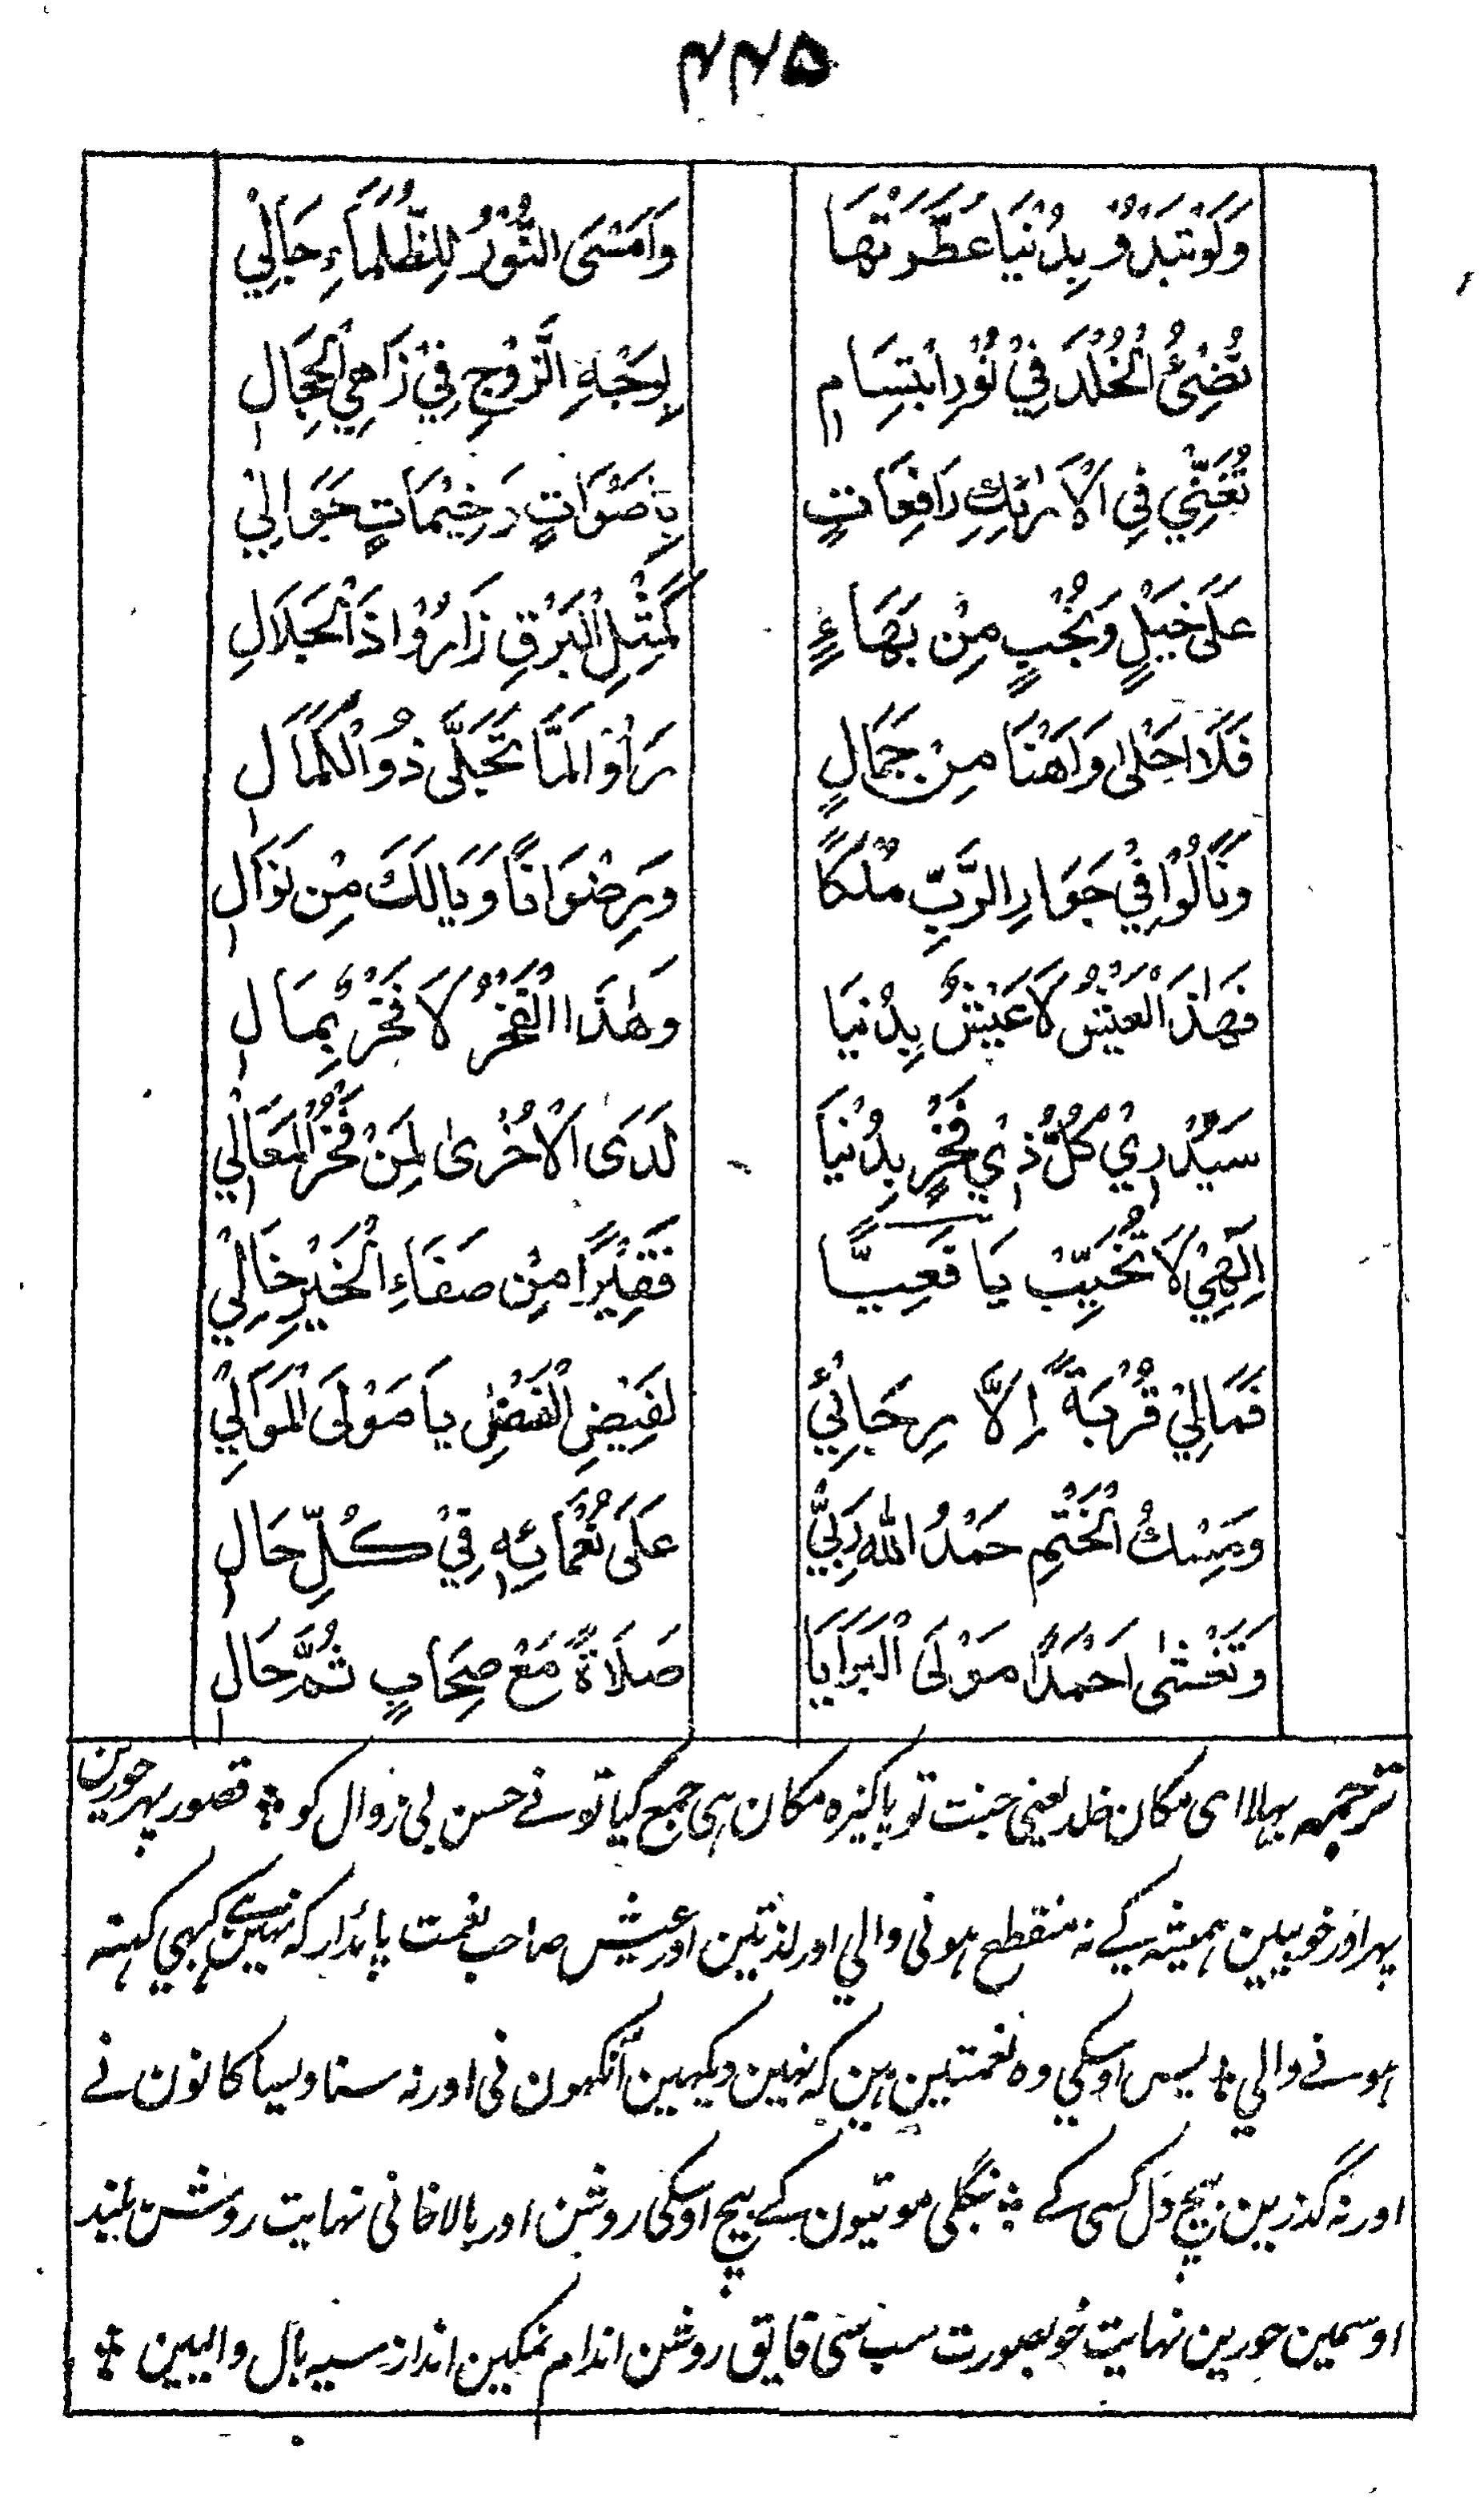 ۲۲۵
وَلَوْ تَبْدُوْ بِدُنْيَا عَطَّرَتْهَا وَاَمْسَى النُّوْرُ لِلظَّلْمَاءِ جَالِيْ
تُضِئُ الْخُلْدَ فِيْ نُوْرِ ابْتِسَامٍ بِوَجْهِ الزَّوْجِ فِيْ زَاهِي الْحِجَالِ
تُغَنِّيْ فِي الْاَرَائِكِ رَافِعَاتٍ بِاَصْوَاتٍ رَخِيْمَاتٍ حَوَالِيْ
عَلَى خَيْلٍ وَنُجْبٍ مِنْ بَهَاءٍ كَمِثْلِ الْبَرْقِ زَارُوْا ذَا الْجَلَالِ
فَلَا اَحْلَى وَاَهْنَا مِنْ جَمَالٍ رَاَوْا لَمَّا تَجَلَّى ذُوالْكَمَالِ
وَنَالُوْا فِيْ جَوَارِ الرَّبِّ مُلْكًا وَرِضْوَانًا وَيَالَكَ مِنْ نَوَالِ
فَهٰذَا الْعَيْشُ لَا عَيْشٌ بِدُنْيَا وَهٰذَا الْفَخْرُ لَا فَخْرٌ بِمَالِ
سَيَدْرِيْ كُلُّ ذِيْ فَخْرٍ بِدُنْيَا لَدَى الْاُخْرَى لِمَنْ فَخْرُ الْمَعَالِيْ
اِلٰهِيْ لَا تُخَيِّبْ يَا فَعِيًّا فَقِيْرًا مِنْ صَفَاءِ الْخَيْرِ خَالِيْ
فَمَالِيْ قُرْبَةٌ اِلَّا رِجَائِيْ لِفَيْضِ الْفَضْلِ يَا مَوْلَى الْمَوَالِيْ
وَمِسْكُ الْخَتْمِ حَمْدُ اللّٰهِ رَبِّيْ عَلَى نُعْمَائِهٖ فِيْ كُلِّ حَالِ
وَتَغْشٰى اَحْمَدًا مَوْلَى الْبَرَايَا صَلَاةً مَعْ صِحَابٍ ثُمَّ حَالِ
ترجمہ پہلا ای مکان خلد یعنی جنت تو پاکیزہ مکان ہی جمع کیا تو نے حسن بی زوال کو ٭ قصور پہر حورین
پہر اور خوبیین ہمیشہ کے نہ منقطع ہونی والي اور لذتین اور عیش صاحب نعمت پائدار کہ نہین کبہی کہنہ
ہونے والي ٭ پس اوسکي وہ نعمتین ہین کہ نہین دیکہین آنکہون نی اور نہ سنا ویسا کانون نے
اور نہ گذرین بیچ دل کسی کے ٭ بنگلی موتیون کے بیچ اوسکی روشن اور بالاخانی نہایت روشن بلند
اوسمین حورین نہایت خوبصورت سب سی فایق روشن اندام نمکین انداز سیہ بال والیین ٭